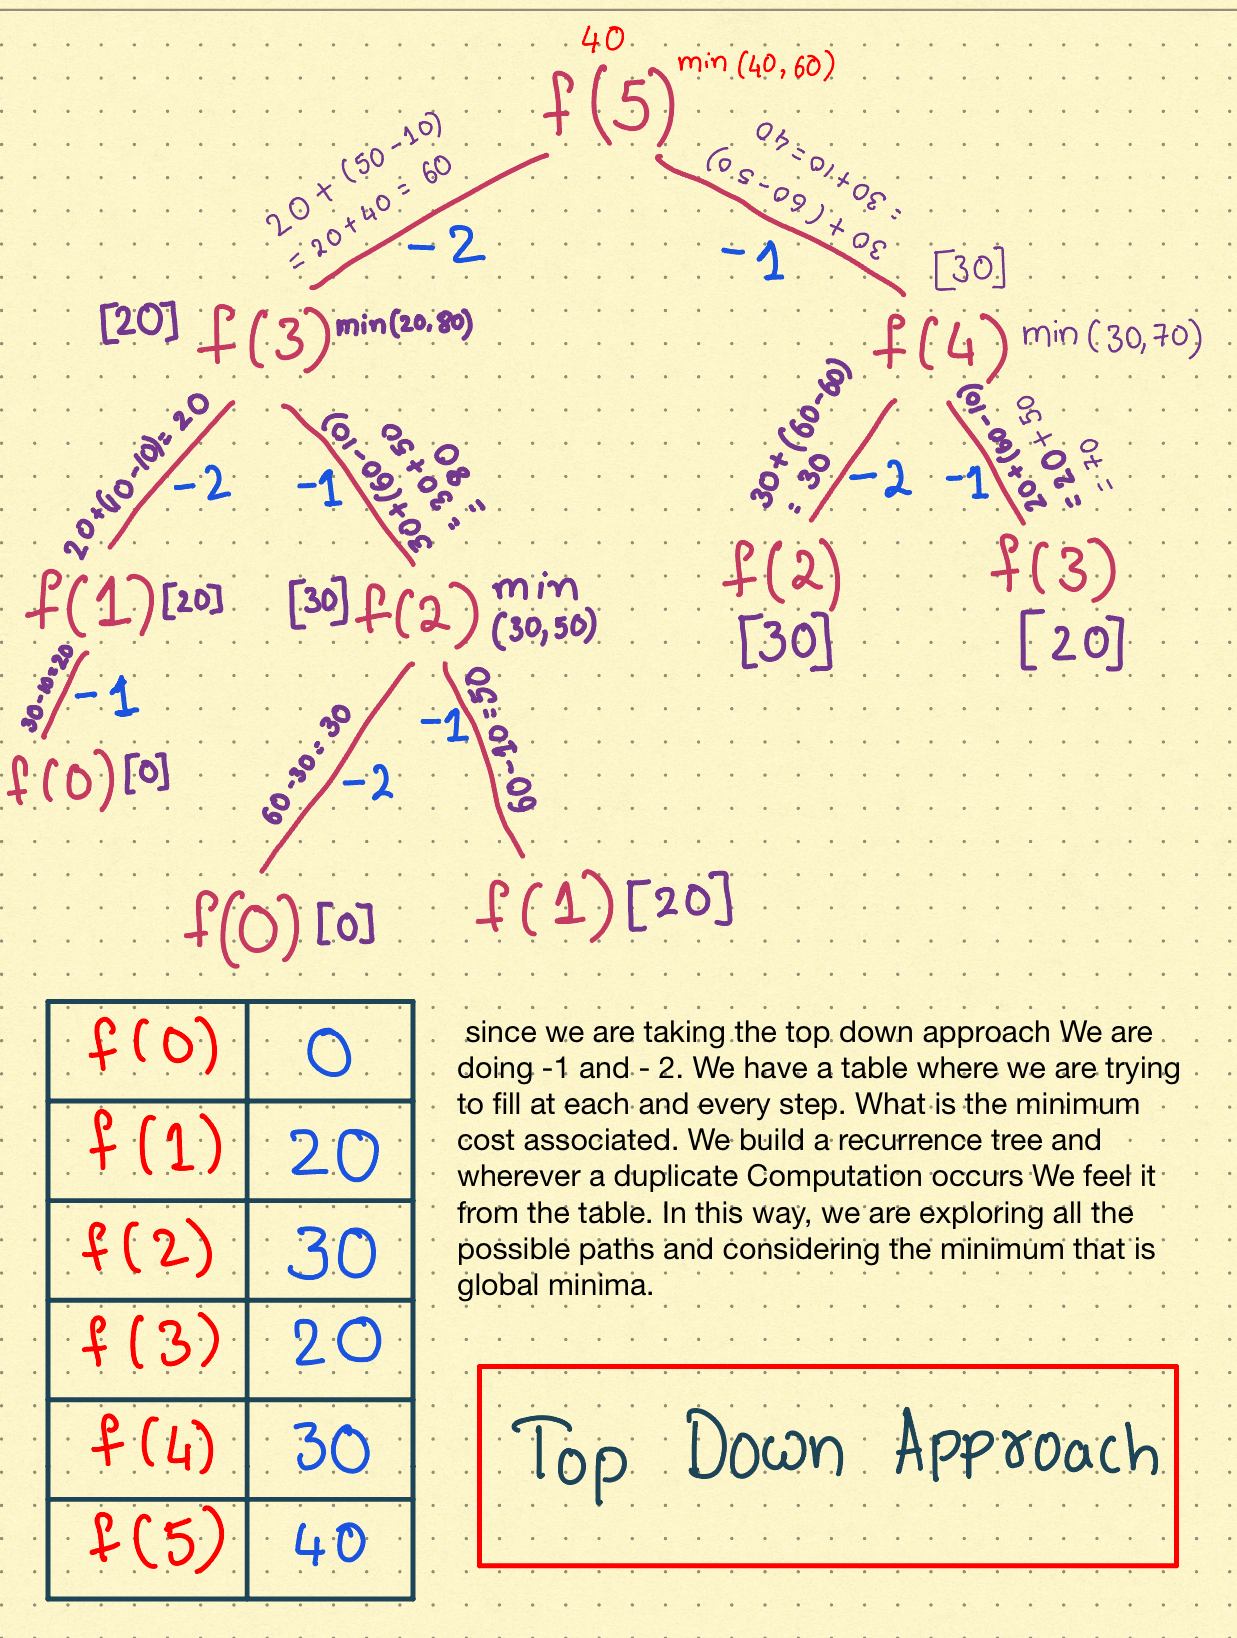 40
f(5) min(40, 60)
20 + (50 - 10)
= 20 + 40 = 60
30 + (60 - 50)
= 30 + 10 = 40
-2
-1
[20] f(3) min(20, 80)
[30]
f(4) min(30, 70)
20 + (10 - 10) = 20
-2
-1
30 + (60 - 10)
= 30 + 50
= 80
30 + (60 - 60)
= 30
-2
-1
20 + (60 - 10)
= 20 + 50
= 70
f(1) [20]
[30] f(2) min
(30, 50)
f(2)
[30]
f(3)
[20]
30 - 10 = 20
-1
f(0) [0]
60 - 30 = 30
-2
-1
60 - 10 = 50
f(0) [0]
f(1) [20]
f(0) 0
f(1) 20
f(2) 30
f(3) 20
f(4) 30
f(5) 40
since we are taking the top down approach We are
doing -1 and - 2. We have a table where we are trying
to fill at each and every step. What is the minimum
cost associated. We build a recurrence tree and
wherever a duplicate Computation occurs We feel it
from the table. In this way, we are exploring all the
possible paths and considering the minimum that is
global minima.
Top Down Approach